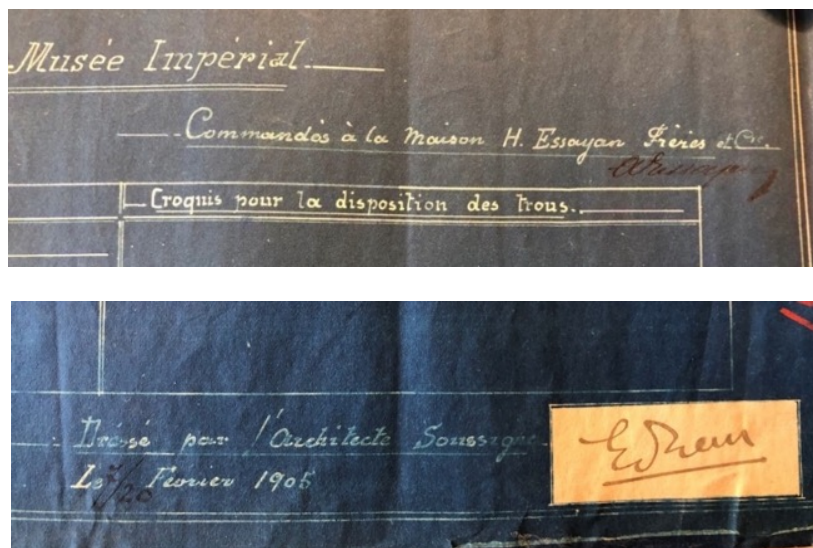 Musée Impérial.
Commandés à la Maison H. Essayan Frères et Cie.
Croquis pour la disposition des trous.
Dréssé par l'Architecte Soussigné
Le 7/20 Février 1905